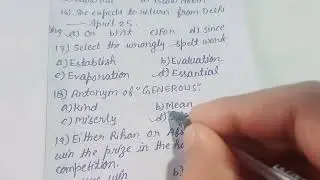 16. She expects to return from Delhi
—— April 25.
a) On b) At c) For d) Since
17) Select the wrongly spelt word
a) Establish b) Evaluation
c) Evaporation d) Essantial
18) Antonym of "GENEROUS"
a) Kind b) Mean
c) Miserly d)
19) Either Rihan or
win the prize in the
competition.
win b)